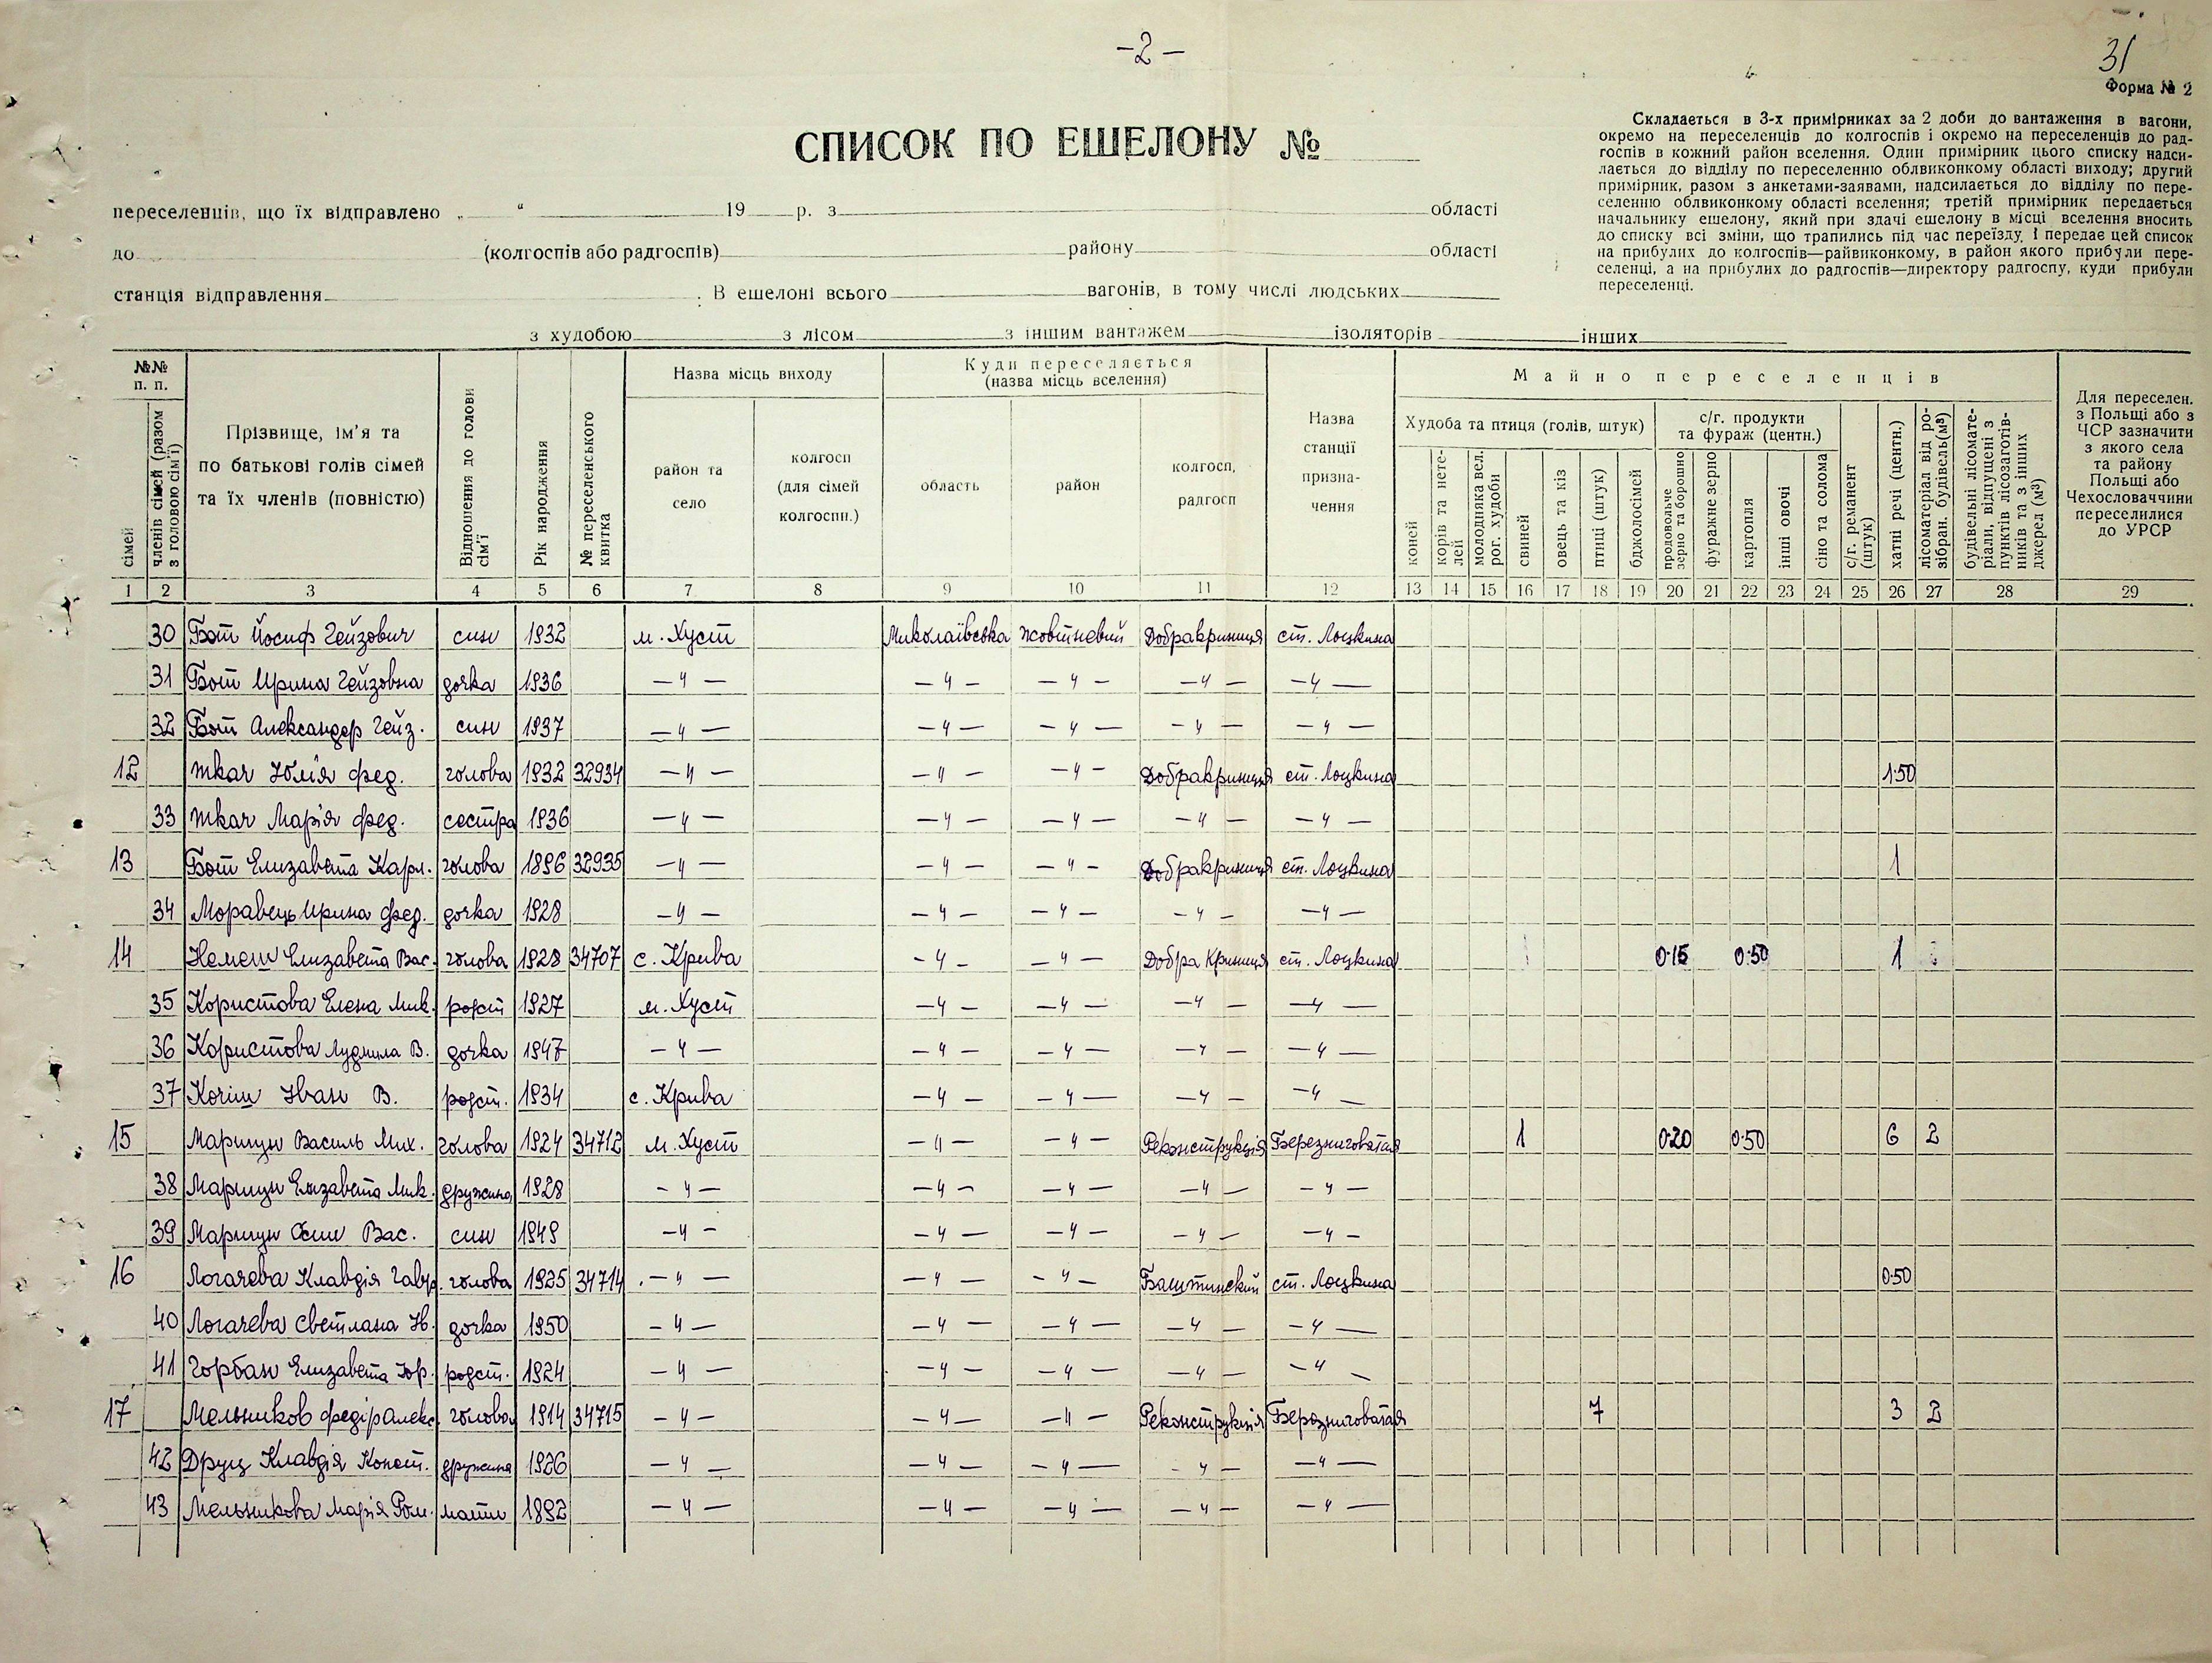 -2-
31
Форма № 2
СПИСОК ПО ЕШЕЛОНУ №
Складається в 3-х примірниках за 2 доби до вантаження в вагони,
окремо на переселенців до колгоспів і окремо на переселенців до рад-
госпів в кожний район вселення. Один примірник цього списку надси-
лається до відділу по переселенню облвиконкому області виходу; другий
примірник, разом з анкетами-заявами, надсилається до відділу по пере-
селенню облвиконкому області вселення; третій примірник передається
начальнику ешелону, який при здачі ешелону в місці вселення вносить
до списку всі зміни, що трапились під час переїзду. І передає цей список
на прибулих до колгоспів—райвиконкому, в район якого прибули пере-
селенці, а на прибулих до радгоспів—директору радгоспу, куди прибули
переселенці.
переселенців, що їх відправлено „ “ 19 р. з області
до (колгоспів або радгоспів) району області
станція відправлення . В ешелоні всього вагонів, в тому числі людських
з худобою з лісом з іншим вантажем ізоляторів інших
№№ п. п.
сімей
членів сімей (разом з головою сім'ї)
Прізвище, ім'я та по батькові голів сімей та їх членів (повністю)
Відношення до голови сім'ї
Рік народження
№ переселенського квитка
Назва місць виходу
район та село
колгосп (для сімей колгоспн.)
Куди переселяється (назва місць вселення)
область
район
колгосп, радгосп
Назва станції призна-чення
Майно переселенців
Худоба та птиця (голів, штук)
коней
корів та нете-лей
молодняка вел. рог. худоби
свиней
овець та кіз
птиці (штук)
бджолосімей
с/г. продукти та фураж (центн.)
продовольче зерно та борошно
фуражне зерно
картопля
інші овочі
сіно та солома
с/г. реманент (штук)
хатні речі (центн.)
лісоматеріал від ро-зібран. будівель (м³)
будівельні лісомате-ріали, відпущені з пунктів лісозаготів-ників та з інших джерел (м³)
Для переселен. з Польщі або з ЧСР зазначити з якого села та району Польщі або Чехословаччини переселилися до УРСР
1 2 3 4 5 6 7 8 9 10 11 12 13 14 15 16 17 18 19 20 21 22 23 24 25 26 27 28 29
30 Бот Йосиф Гейзович син 1932 м. Хуст Миколаївська Жовтневий Добракриниця ст. Лоцкина
31 Бот Ирина Гейзовна дочка 1936 —〃— —〃— —〃— —〃— —〃—
32 Бот Александер Гейз. син 1937 —〃— —〃— —〃— —〃— —〃—
12 Ткач Юлія Фед. голова 1932 32934 —〃— —〃— —〃— Добракриниця ст. Лоцкина 1·50
33 Ткач Марія Фед. сестра 1936 —〃— —〃— —〃— —〃— —〃—
13 Бот Елизавета Карл. голова 1896 32935 —〃— —〃— —〃— Добракриниця ст. Лоцкина 1
34 Моравець Ирина Фед. дочка 1928 —〃— —〃— —〃— —〃— —〃—
14 Немеш Елизавета Вас. голова 1928 34707 с. Крива —〃— —〃— Добра Криниця ст. Лоцкина 0·15 0·50 1
35 Користова Елена Мик. родст 1927 м. Хуст —〃— —〃— —〃— —〃—
36 Користова Лудмила В. дочка 1947 —〃— —〃— —〃— —〃— —〃—
37 Кочіш Іван В. родст. 1934 с. Крива —〃— —〃— —〃— —〃—
15 Марицун Василь Мих. голова 1924 34712 м. Хуст —〃— —〃— Реконструкція Березниговатая 1 0·20 0·50 6 2
38 Марицун Елизавета Мик. дружина 1928 —〃— —〃— —〃— —〃— —〃—
39 Марицун Вас. син 1949 —〃— —〃— —〃— —〃— —〃—
16 Логачева Клавдія Гавр. голова 1925 34714 —〃— —〃— —〃— Баштинский ст. Лоцкина 0·50
40 Логачева Светлана дочка 1950 —〃— —〃— —〃— —〃— —〃—
41 Горбан Елизавета Юр. родст. 1924 —〃— —〃— —〃— —〃— —〃—
17 Мельников Федір Алекс. голова 1914 34715 —〃— —〃— —〃— Реконструкція Березниговатая 7 3 2
42 Друц Клавдія Конст. дружина 1926 —〃— —〃— —〃— —〃— —〃—
43 Мельникова Марія Ром. мати 1892 —〃— —〃— —〃— —〃— —〃—